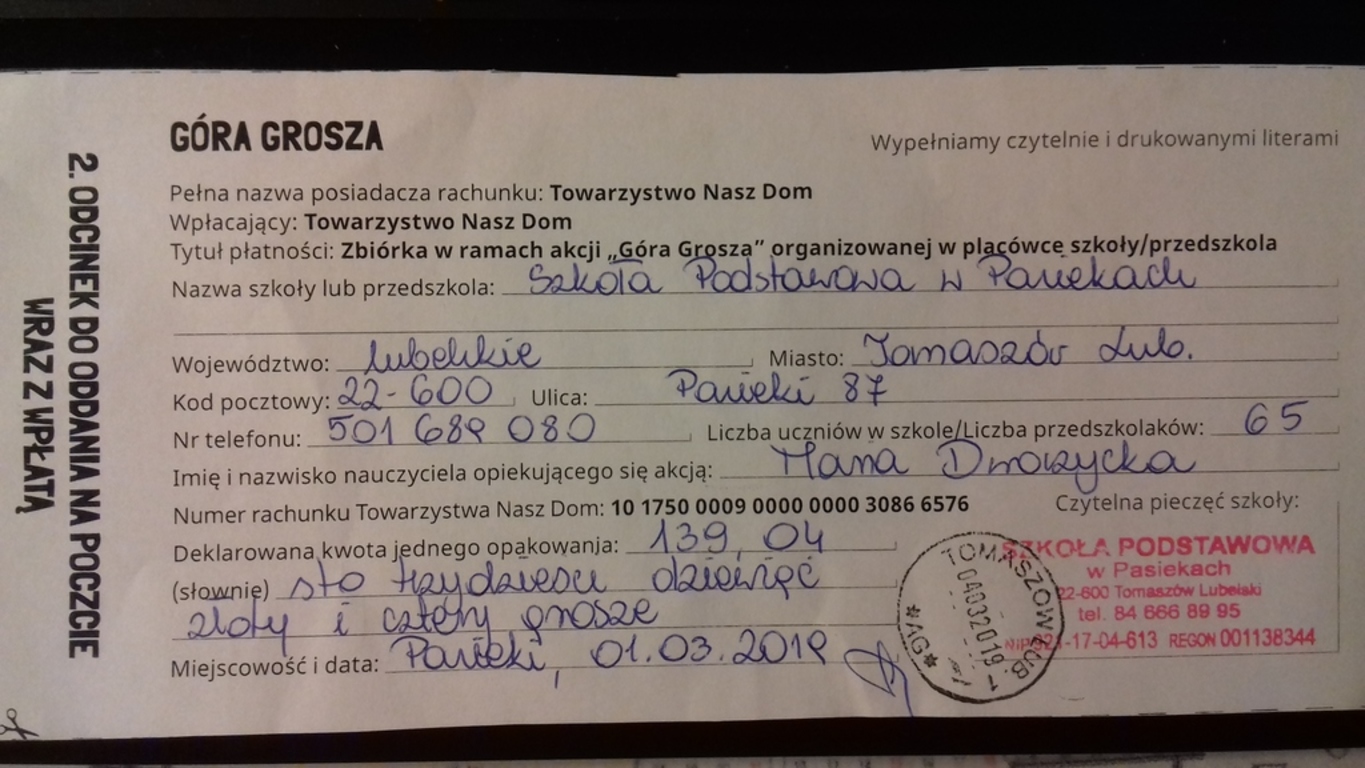 GÓRA GROSZA
Wypełniamy czytelnie i drukowanymi literami
Pełna nazwa posiadacza rachunku: Towarzystwo Nasz Dom
Wpłacający: Towarzystwo Nasz Dom
Tytuł płatności: Zbiórka w ramach akcji „Góra Grosza” organizowanej w placówce szkoły/przedszkola
Nazwa szkoły lub przedszkola: Szkoła Podstawowa w Pasiekach
Województwo: lubelskie Miasto: Tomaszów Lub.
Kod pocztowy: 22-600 Ulica: Pasieki 87
Nr telefonu: 501 689 080 Liczba uczniów w szkole/Liczba przedszkolaków: 65
Imię i nazwisko nauczyciela opiekującego się akcją:
Numer rachunku Towarzystwa Nasz Dom: 10 1750 0009 0000 0000 3086 6576
Czytelna pieczęć szkoły:
Deklarowana kwota jednego opakowania: 139,04
(słownie) sto trzydzieści dziewięć
złoty i cztery grosze
Miejscowość i data: Pasieki, 01.03.2019
SZKOŁA PODSTAWOWA
w Pasiekach
22-600 Tomaszów Lubelski
tel. 84 666 89 95
17-04-613 REGON 001138344
TOMASZÓW LUB. 1
04032019
*AG*
2. ODCINEK DO ODDANIA NA POCZCIE
WRAZ Z WPŁATĄ